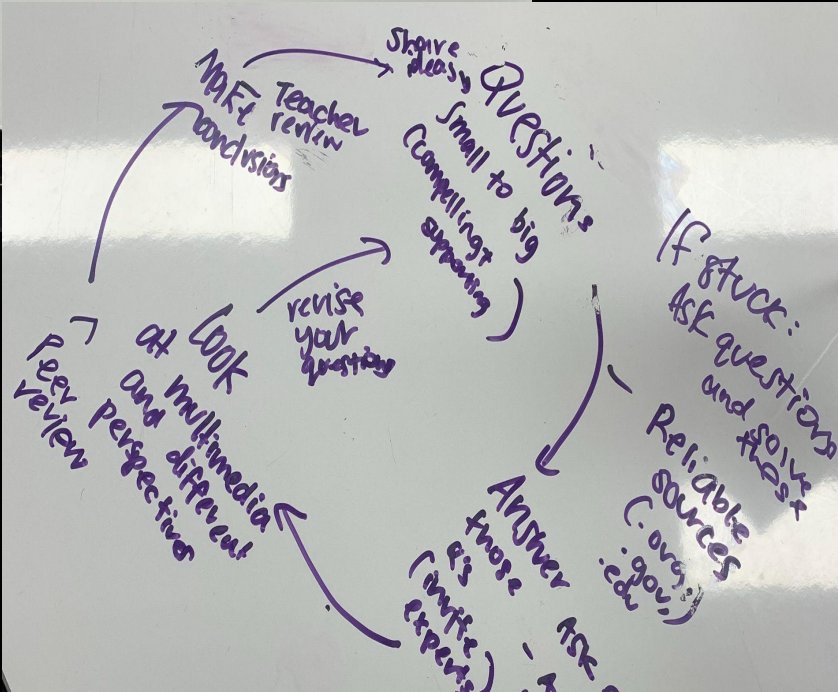 Share
Ideas
Questions
Small to big
(compelling +
supporting)
If stuck:
Ask questions
and solve
those
Reliable
sources
(.org,
.gov,
.edu)
Answer
those
q's
(invite
experts)
Ask
Look
at multimedia
and different
perspectives
revise
your
questions
Peer
review
Make
conclusions
Teacher
review